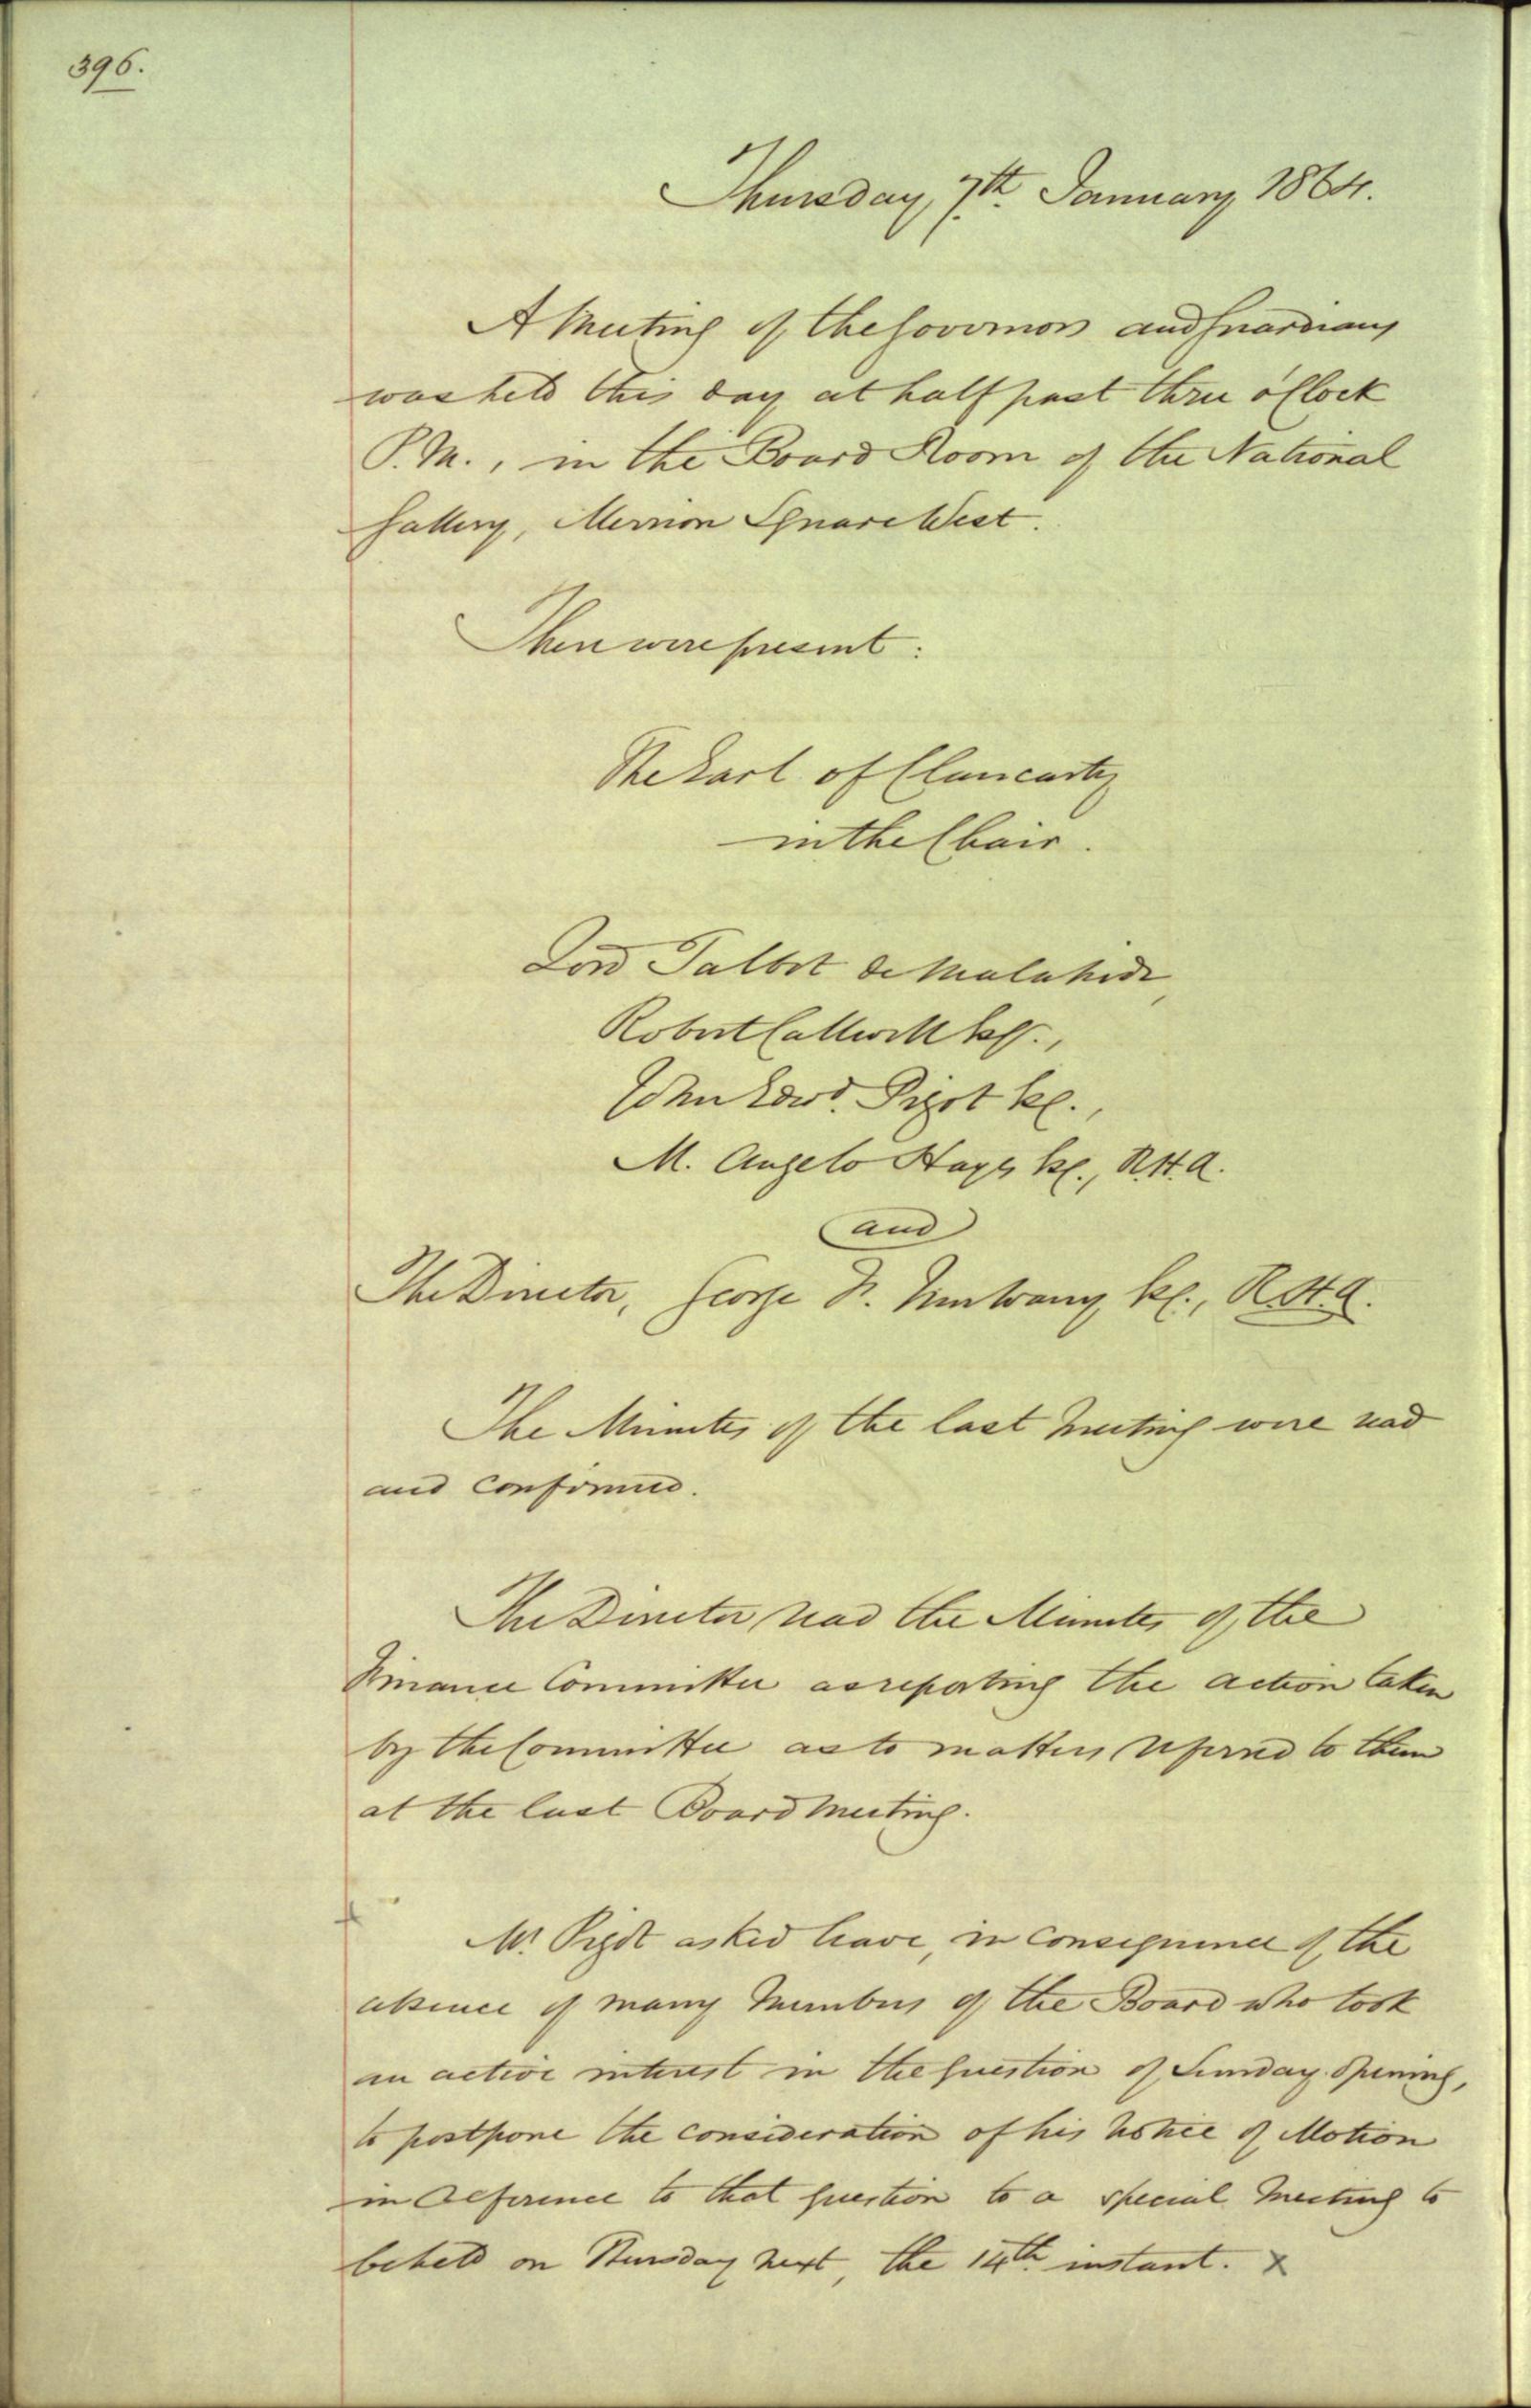 396.
Thursday, 7th. January 1864.
A Meeting of the Governors and Guardians
was held this day at half past three o'Clock
P.M., in the Board Room of the National
Gallery, Merrion Square West.
There were present:
The Earl of Clancarty
in the Chair.
Lord Talbot de Malahide,
Robert Callwell Esq.,
John Edwd. Pigot Esq.,
M. Angelo Hayes Esq., R.H.A.
and
The Director, George F. Mulvany Esq., R.H.A.
The Minutes of the last Meeting were read
and Confirmed.
The Director read the Minutes of the
Finance Committee as reporting the action taken
by the Committee as to matters referred to them
at the last Board Meeting.
Mr Pigot asked leave, in Consequence of the
absence of many Members of the Board who took
an active interest in the question of Sunday Opening,
to postpone the consideration of his Notice of Motion
in Reference to that question to a Special Meeting to
be held on Thursday next, the 14th instant. x